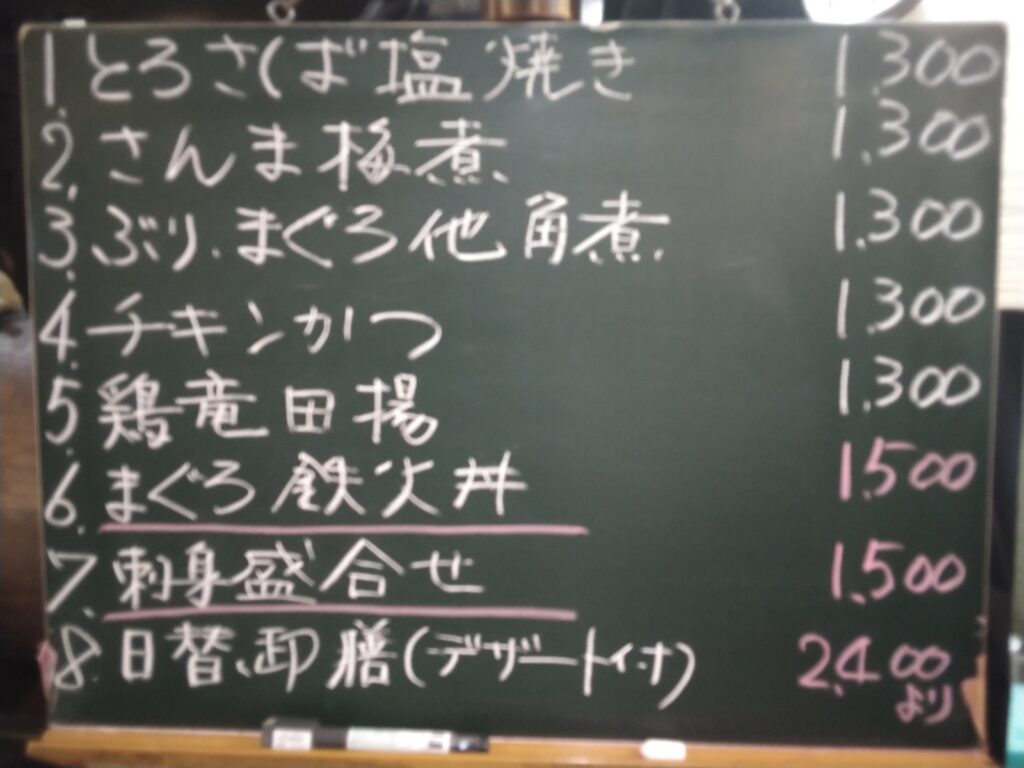 1. とろさば塩焼き 1,300
2. さんま梅煮 1,300
3. ぶり、まぐろ他角煮 1,300
4. チキンかつ 1,300
5. 鶏竜田揚 1,300
6. まぐろ鉄火丼 1,500
7. 刺身盛合せ 1,500
8. 日替、御膳(デザート付) 2,400
より